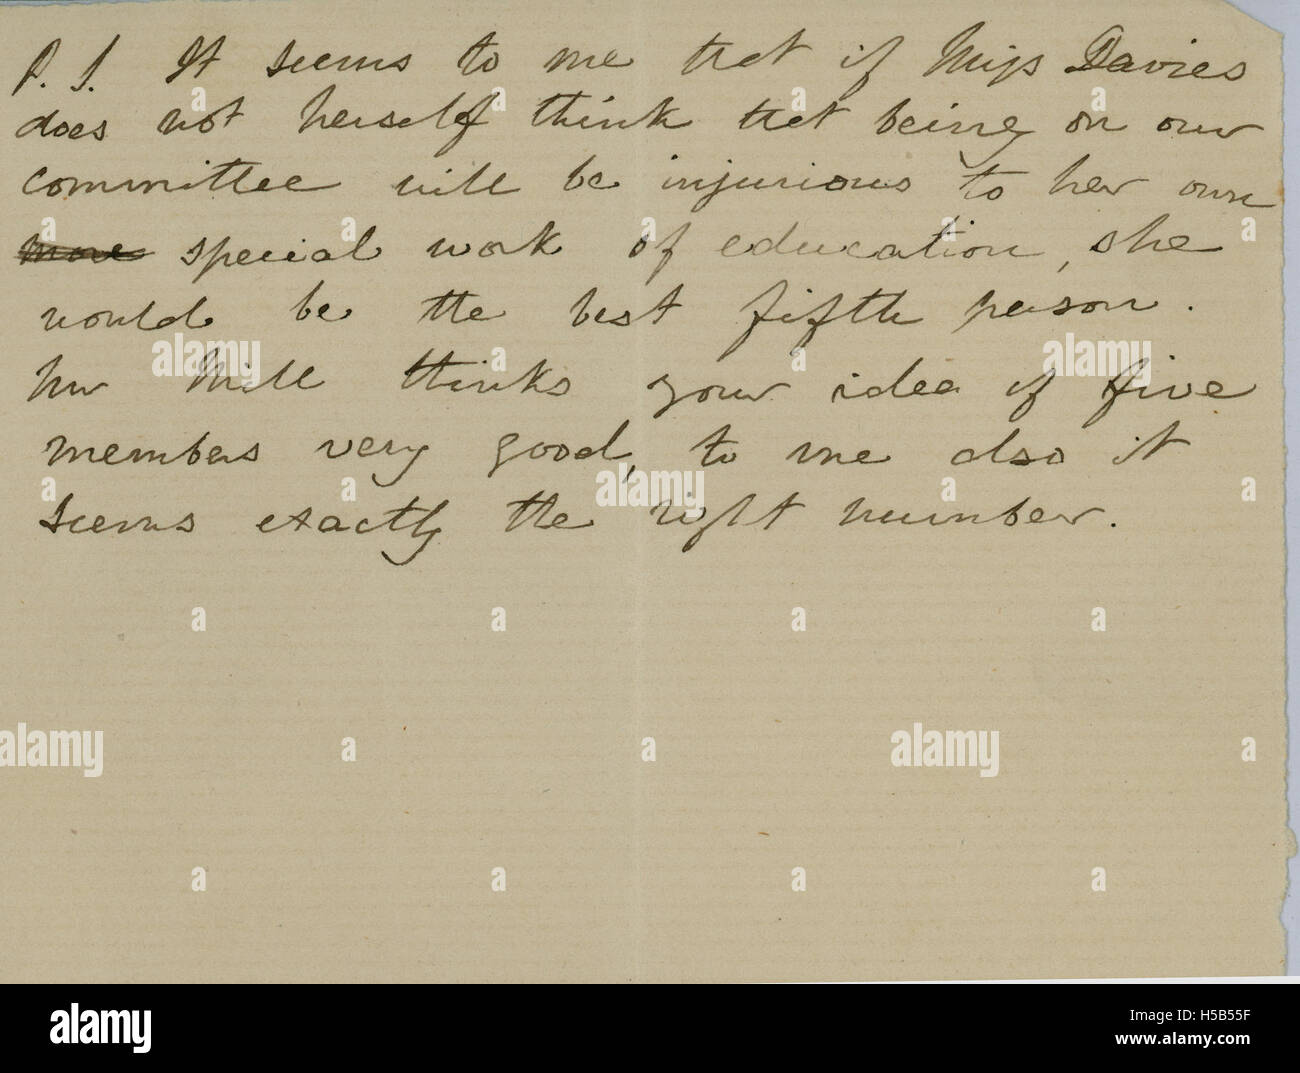 P. S. It seems to me that if Miss Davies
does not herself think that being on our
committee will be injurious to her own
more special work of education, she
would be the best fifth person.
Mr Mill thinks your idea of five
members very good, to me also it
seems exactly the right number.
alamy
alamy
alamy
alamy
alamy
alamy
Image ID: H5B55F
www.alamy.com